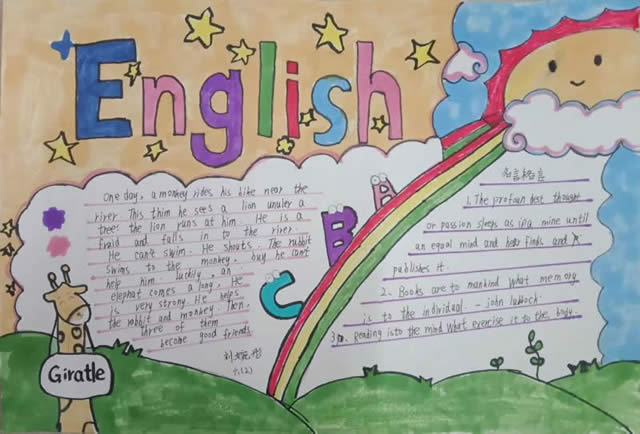 English
One day, a monkey rides his bike near the
river This thim he sees a lion unuler a
tree the lion runs at him. He is a
fraid and falls in to the river
He can't swim. He shouts. The rabbit
Swims to the monkey, buy he can't
help him Luckily, an
elephat comes a long, He
is very strong. He helps
the rabbit and monkey. Then,
three of them
become good friends
A
B
C
名言名言
1. The profoun dest thought
or passion sleeps as in a mine until
an eqoal mind and finds and
publishes it.
2. Books are to mankind what memory
is to the individual. - john lubbock.
3. Reading is to the mind What exercise it to the body.
Giratle